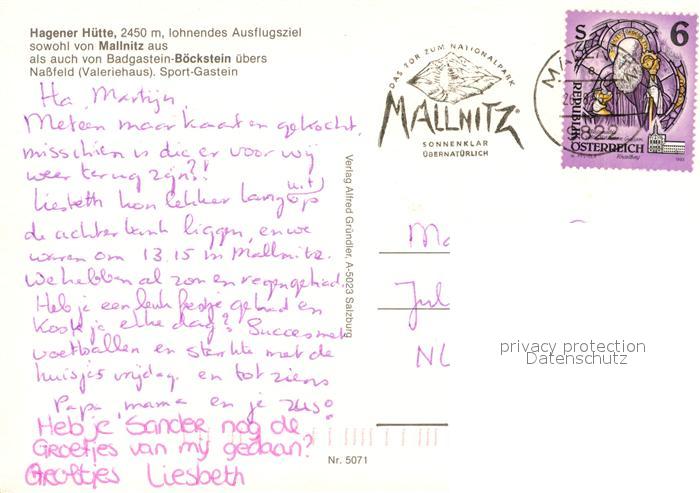 Hagener Hütte, 2450 m, lohnendes Ausflugsziel
sowohl von Mallnitz aus
als auch von Badgastein-Böckstein übers
Naßfeld (Valeriehaus). Sport-Gastein
Ha, Martijn,
Meteen maar kaarten gekocht,
misschien is die er voor wij
weer terug zijn?!
Liesbeth kon lekker languit op
de achterbank liggen, en we
waren om 13.15 in Mallnitz.
We hebben al zon en regen gehad.
Heb je een leuk feestje gehad en
Kook je elke dag? Succes met
voetballen en sterkte met de
huisjes vrijdag. en tot ziens
Papa mama en je zus!
Heb je Sander nog de
Groetjes van mij gedaan?
Groetjes Liesbeth
Verlag Alfred Gründler, A-5023 Salzburg
Nr. 5071
DAS TOR ZUM NATIONALPARK
MALLNITZ
SONNENKLAR
ÜBERNATÜRLICH
9822
S 6
REPUBLIK
ÖSTERREICH
Jul
NL
privacy protection
Datenschutz